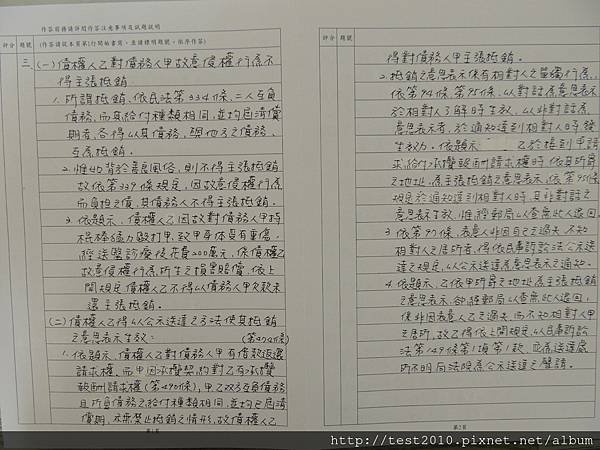 作答前務請詳閱作答注意事項及試題說明
評分 題號 (作答請從本頁第1行開始書寫,並請標明題號,依序作答)
三、(一)債權人乙對債務人甲故意侵權行為不
得主張抵銷
1. 所謂抵銷,依民法第334條,二人互負
債務,而其給付種類相同,並均屆清償
期者,各得以其債務,與他方之債務,
互為抵銷。
2. 惟如背於善良風俗,則不得主張抵銷
故依第339條規定,因故意侵權行為
而負担之債,其債務人不得主張抵銷。
3. 依題示,債權人乙因故對債務人甲持
棍棒猛力毆打甲,致甲身体受有重傷,
經送醫診療後花費200萬元,係債權乙
故意侵權行為所生之損害賠償,依上
開規定債權人乙不得以債務人甲欠款未
還主張抵銷。
(二)債權人乙得以公示送達之方法使其抵銷
之意思表示生效:
1. 依題示,債權人乙對債務人甲有借款返還
請求權,而甲因承攬契約對乙有承攬
報酬請求權(第490條),甲乙双方互負債務
且所負債務之給付種類相同,並均已屆清
償期,亦無禁止抵銷之情形,故債權人乙
第1頁
評分 題號
得對債務人甲主張抵銷。
2. 抵銷之意思表示係有相對人之單獨行為,
依第94條、第95條,以對話為意思表示
於相對人了解時生效,以非對話為
意思表示者,於通知達到相對人時發
生效力。依題示 乙於接到甲請
求給付承攬報酬請求權時,依其所簽
之地址,為主張抵銷之意思表示,依第95條
規定於通知達到相對人時,其非對話之
意思表示方效,惟經郵局以查無此人退回。
3. 依第97條,表意人非因自己之過失,不知
相對人之居所者,得依民事訴訟法公示送
達之規定,以公示送達為意思表示之通知。
4. 依題示,乙依甲所簽之地址為主張抵銷
之意思表示,卻經郵局以查無此人退回,
係非因表意人乙之過失,而不知相對人甲
之居所,故乙得依上開規定,以民事訴訟
法第149條第1項第1款,應為送達處
所不明向法院為公示送達之聲請。
第2頁
http://test2010.pixnet.net/album